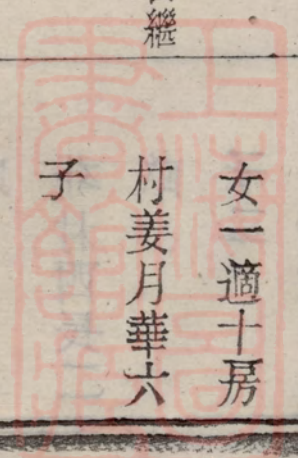 女一適十房
村姜月華六
子
繼